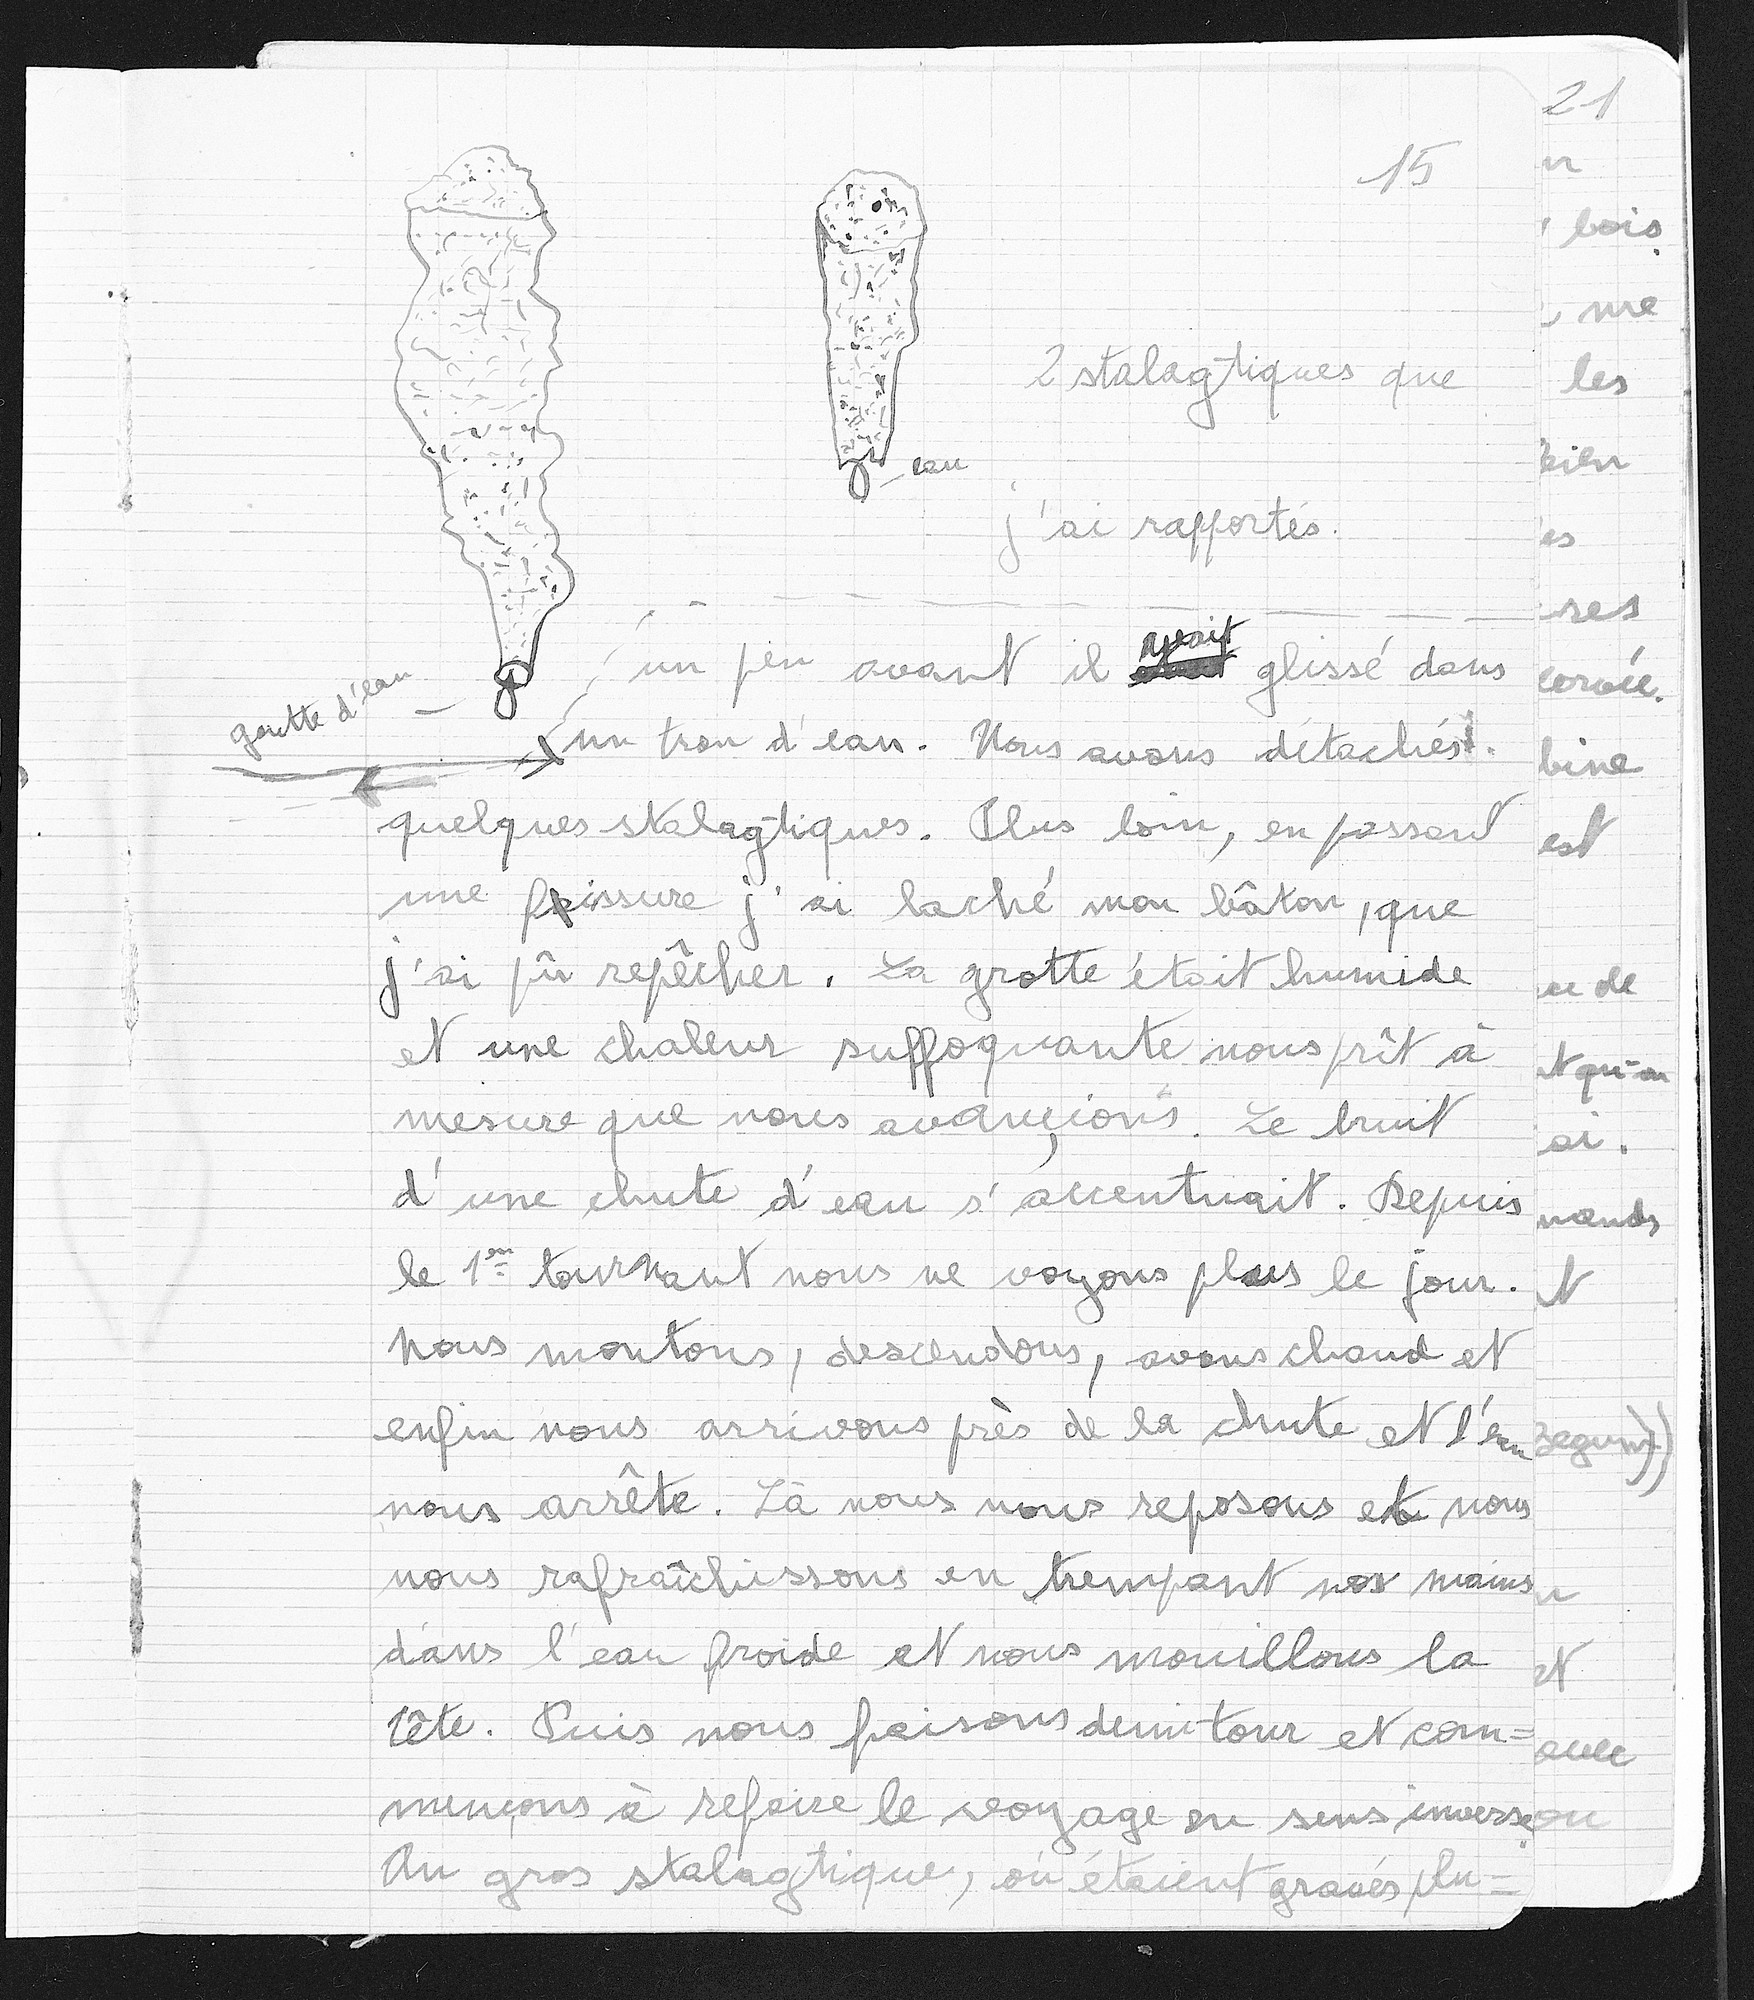 21
15
2 stalagtiques que
eau
j'ai rapportés.
goutte d'eau
un peu avant il avait glissé dans
un trou d'eau. Nous avons détachés
quelques stalagtiques. Plus loin, en passant
une fissure j'ai laché mon bâton, que
j'ai pû repêcher. La grotte était humide
et une chaleur suffoquante nous prît à
mesure que nous avançions. Le bruit
d'une chute d'eau s'accentuait. Depuis
le 1er tournant nous ne voyons plus le jour.
Nous montons, descendons, avons chaud et
enfin nous arrivons près de la chute et l'eau
nous arrête. Là nous nous reposons et nous
nous rafraîchissons en trempant nos mains
dans l'eau froide et nous mouillons la
tête. Puis nous faisons demi-tour et com=
mençons à refaire le voyage en sens inverse.
Au gros stalagtique, où étaient gravés plu=
bois
me
les
bine
est
de
qu'on
ai.
avec
ou